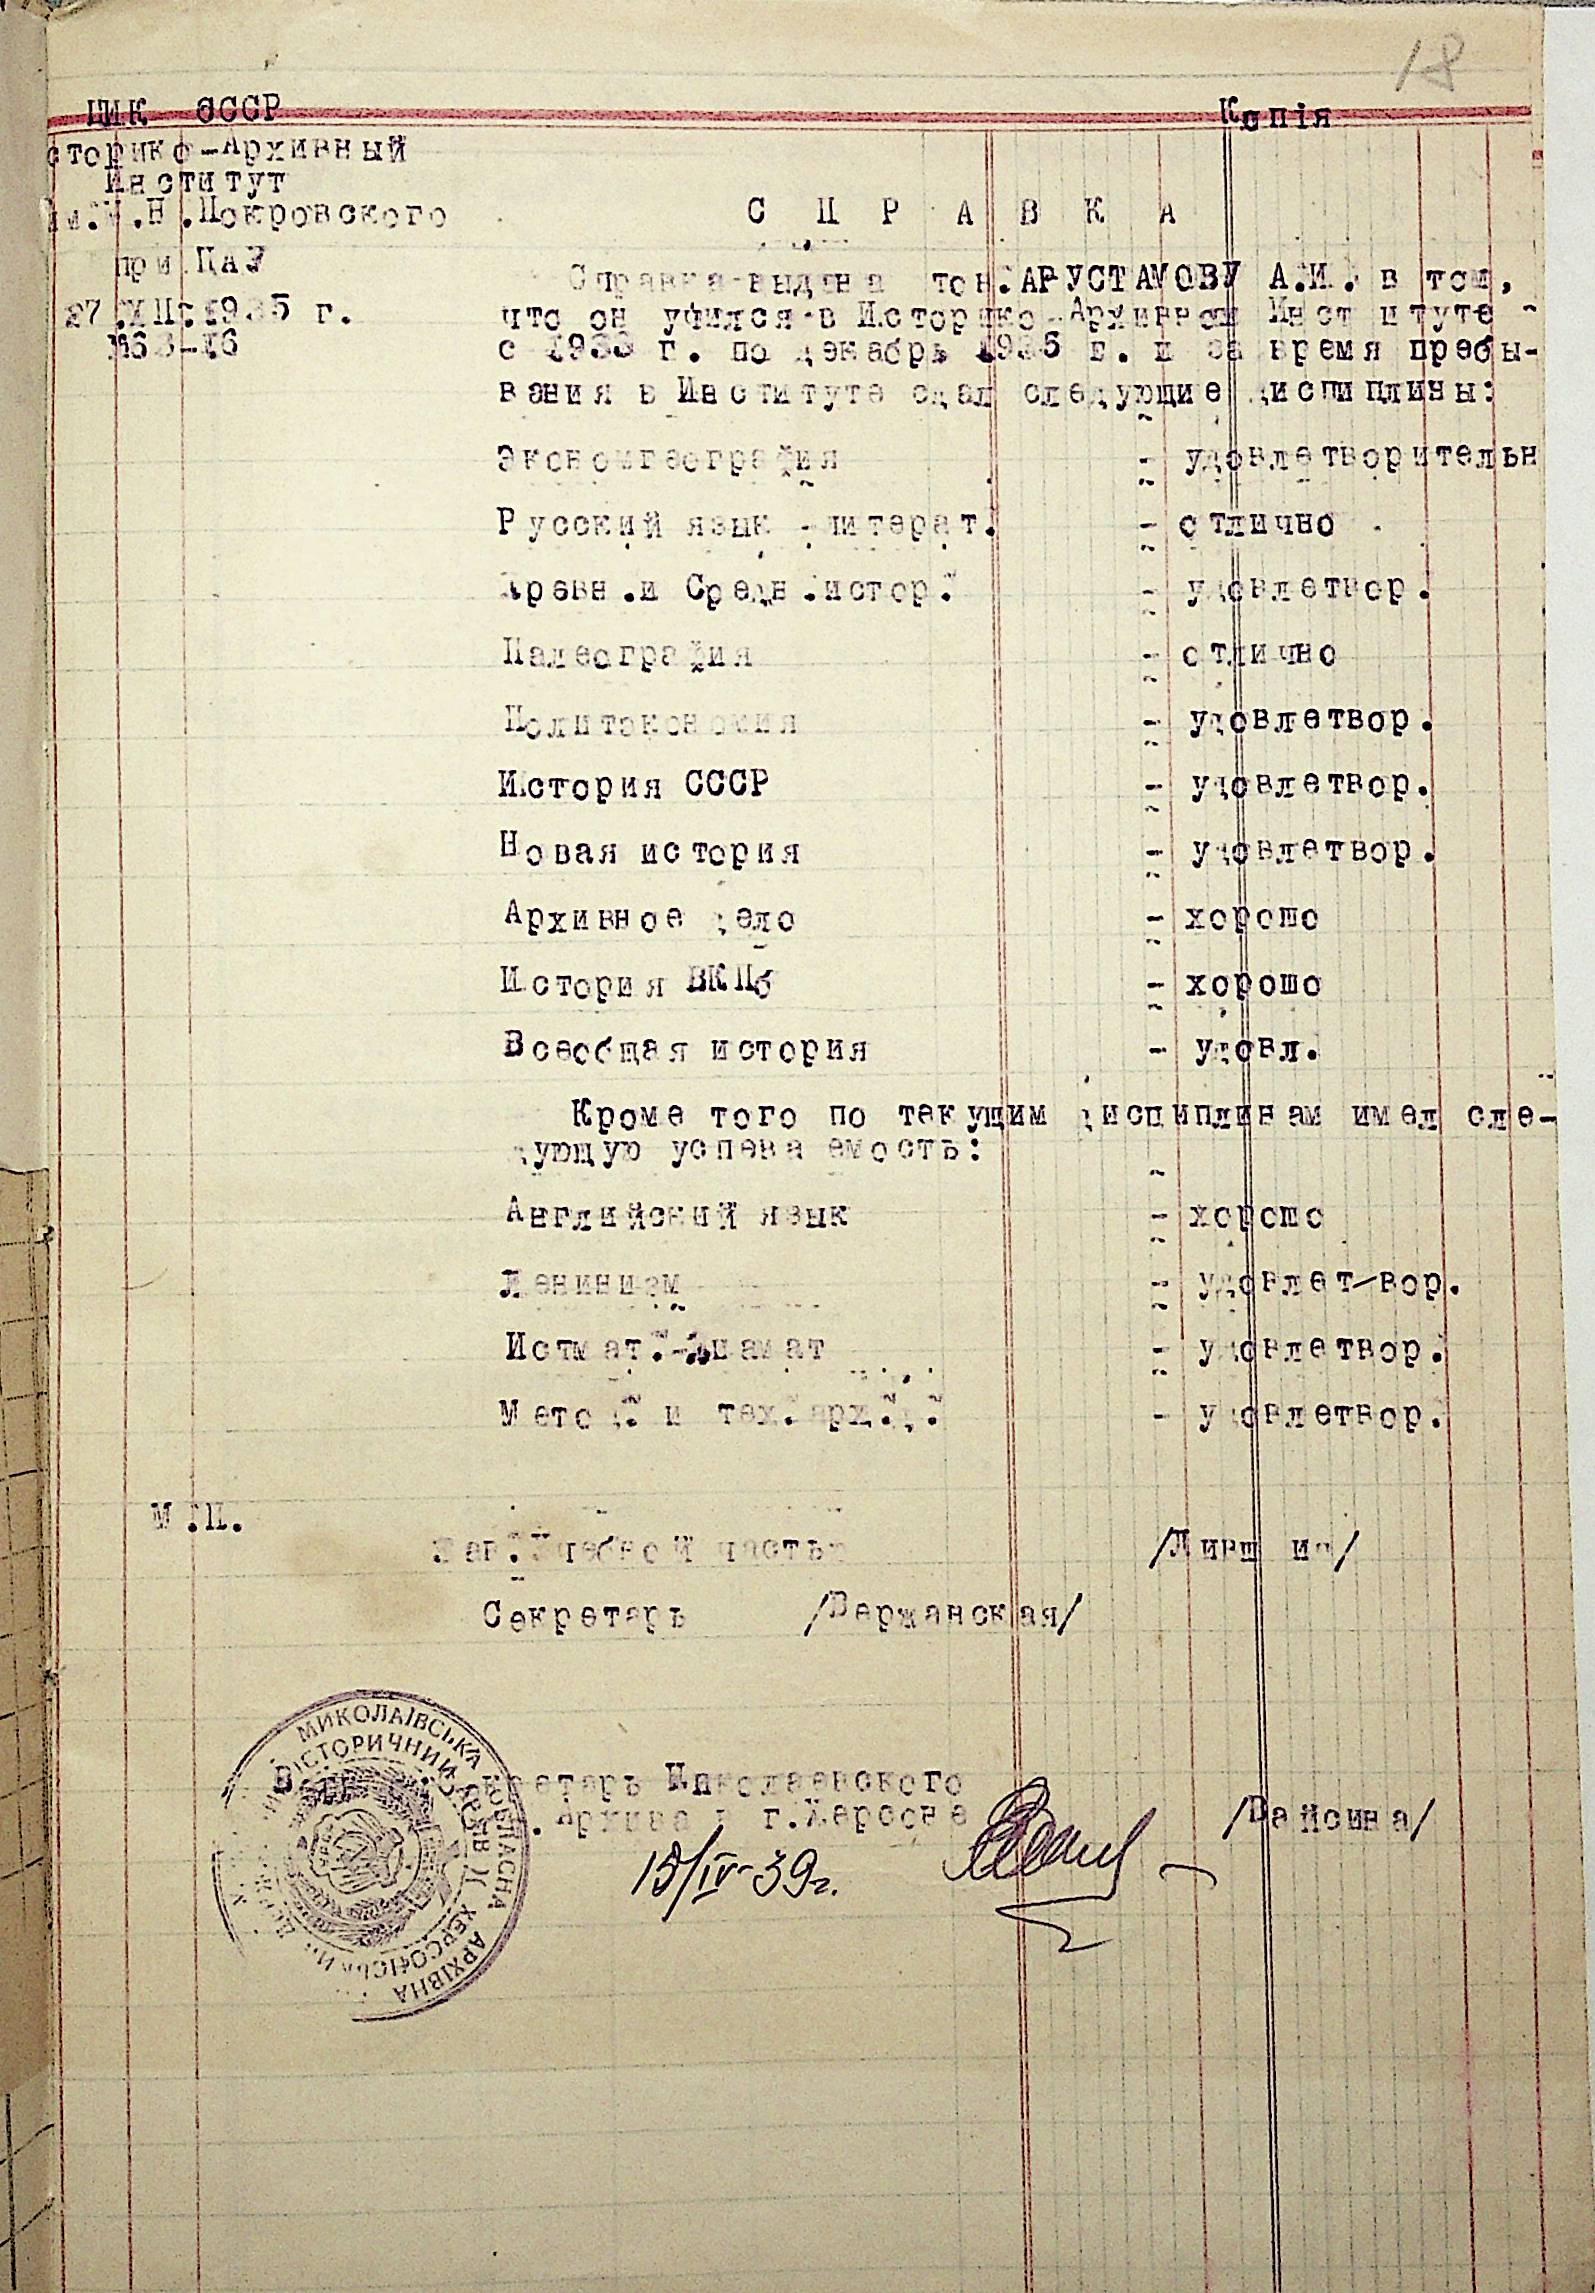 18
ЦИК СССР
Копія
сторико-Архивный
Институт
им.М.Н.Покровского
при ЦАУ
27.XII.1935 г.
№63-16
С П Р А В К А
Справка выдана тов. АРУСТАМОВУ А.И. в том,
что он учился в Историко-Архивном Институте
с 1933 г. по декабрь 1935 г. и за время пребы-
вания в Институте сдал следующие дисциплины:
Экономгеография - удовлетворительн
Русский язык - литерат. - отлично
Древн.и Средн.истор. - удовлетвор.
Палеография - отлично
Политэкономия - удовлетвор.
История СССР - удовлетвор.
Новая история - удовлетвор.
Архивное дело - хорошо
История ВКПб - хорошо
Всеобщая история - удовл.
Кроме того по текущим дисциплинам имел сле-
дующую успеваемость:
Английский язык - хорошо
Ленинизм - удовлет-вор.
Истмат.-диамат - удовлетвор.
Метод. и тех.арх.д. - удовлетвор.
М.П.
Зав.Учебной частью
Секретарь /Вержанская/
секретарь Николаевского
Архива в г.Херсоне /Вайсина/
15/IV-39г.
МИКОЛАЇВСЬКА ОБЛАСНА АРХІВНА
ІСТОРИЧНИЙ АРХІВ